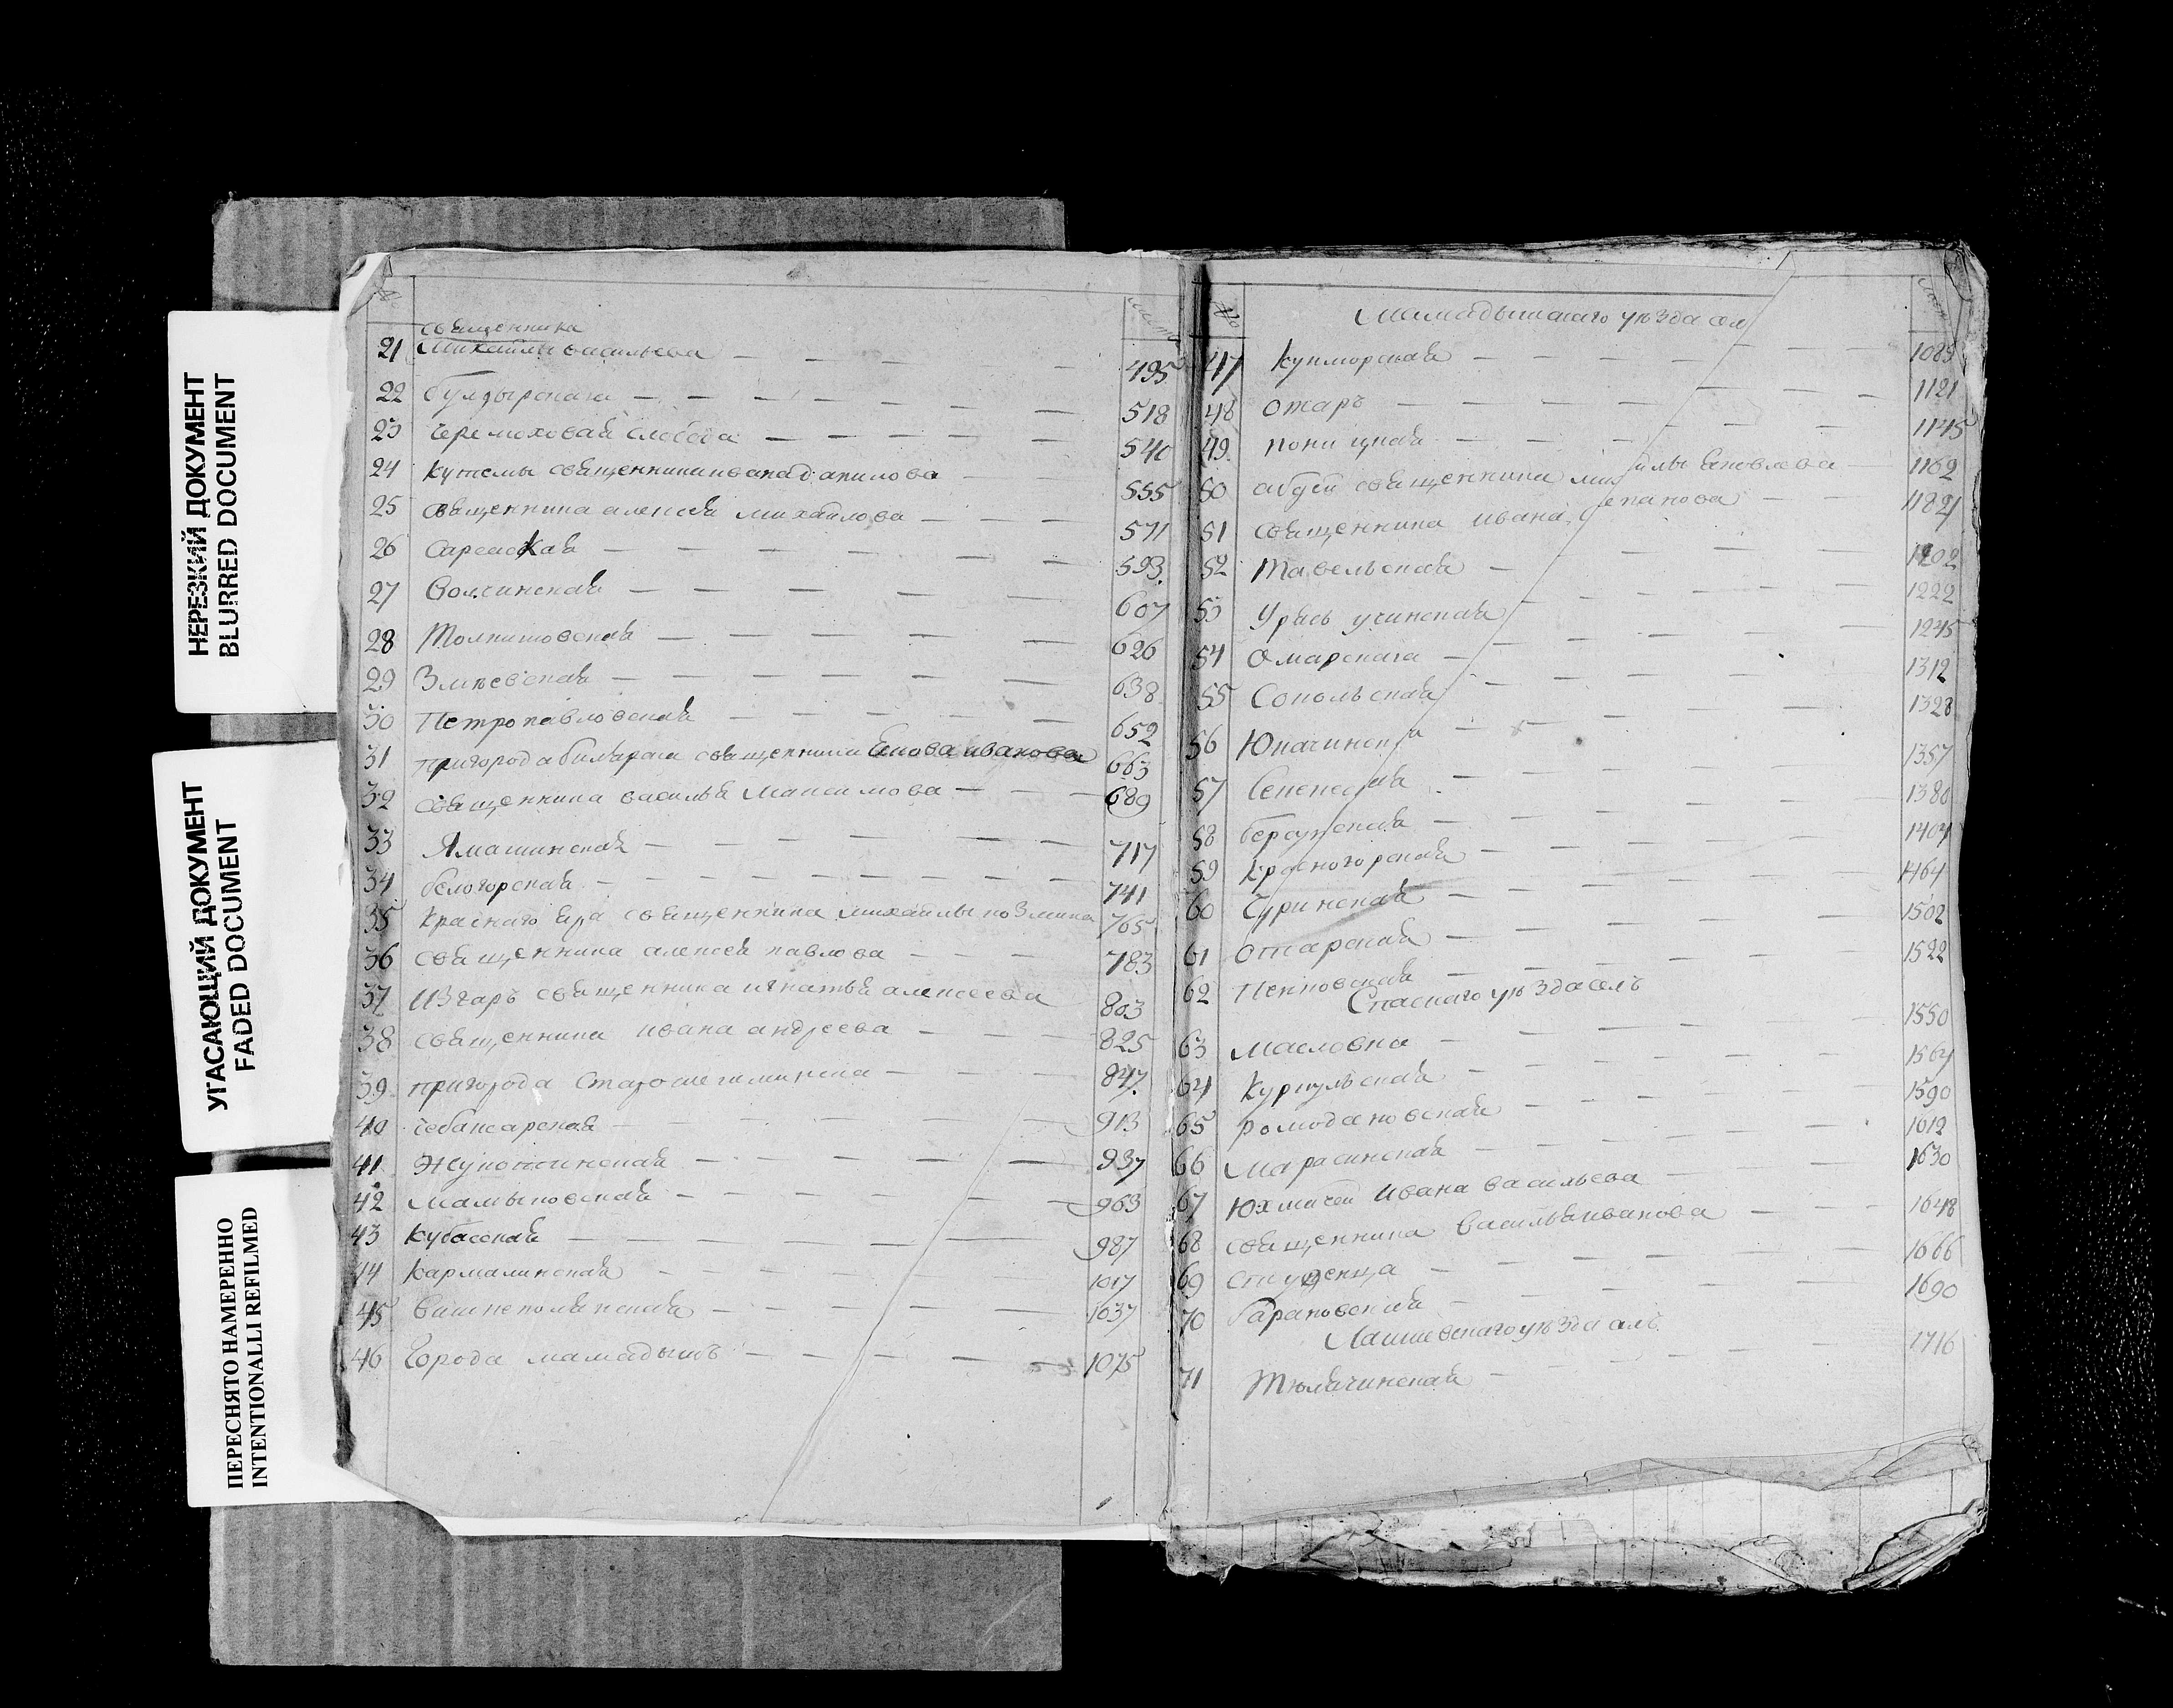 НЕРЕЗКИЙ ДОКУМЕНТ
BLURRED DOCUMENT
УГАСАЮЩИЙ ДОКУМЕНТ
FADED DOCUMENT
ПЕРЕСНЯТО НАМЕРЕННО
INTENTIONALLI REFILMED
№
священника
21 Михаилы васильева 495
22 булдырская 518
23 Черемоховая слобода 540
24 кутемы священника ивана данилова 555
25 священника алексея михайлова 571
26 Сарсаская 593
27 Волчинская 607
28 Толкишовская 626
29 Змиевская 638
30 Петропавловская 652
31 пригорода билярска священника Якова иванова 663
32 священника василья Максимова 689
33 Ямашинская 717
34 белогорская 741
35 Краснаго яра священника михайлы козмина 765
36 священника алексея павлова 783
37 Изгаръ священника игнатья алексеева 803
38 священника ивана андреева 825
39 пригорода Старошешминска 847
40 Чебаксарская 913
41 Жукотинская 937
42 Мамыковская 963
43 Кубасская 987
44 Кармалинская 1017
45 Вишнеполянская 1037
46 Города мамадышъ 1075
№
Мамадышскаго уѣзда сел
47 Кукморская 1089
48 Отаръ 1121
49 1145
50 абдей священника ми йлы Яковлева 1169
51 священника ивана епанова 1182
52 Тавельская 1202
53 Урясь учинская 1222
54 Омарская 1245
55 Сокольская 1312
56 Юкачинска 1328
57 Секенеская 1357
58 берсутская 1380
59 Красногорская 1404
60 Чуринская 1464
61 Отарская 1502
62 Пенковская 1522
Спаскаго уѣзда селъ
63 Масловка 1550
64 Куркульская 1564
65 ромодановская 1590
66 Марасинская 1612
67 Юхмачей ивана васильева 1630
68 священника Василья иванова 1648
69 Студенца 1666
70 барановская 1690
Лаишевскаго уѣзда селъ
71 Тюлячинская 1716